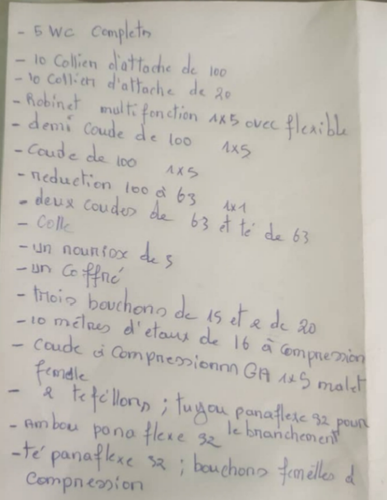 - 5 WC Complets
- 10 Collien d'attache de 100
- 10 Collien d'attache de 20
- Robinet multifonction 1x5 avec flexible
- demi coude de 100 1x5
- Coude de 100 1x5
- reduction 100 à 63 1x1
- deux coudes de 63 et té de 63
- Colle
- un nouriox de 5
- un Coffré
- trois bouchons de 15 et 2 de 20
- 10 mètres d'etaux de 16 à compression
- Coude à Compressionnn GA 1x5 mal et
femelle
- 2 tefillons ; tuyou panaflexe 32 pour
le branchement
- Ambou pana flexe 32
- té panaflexe 32 ; bouchons femelles à
Compression